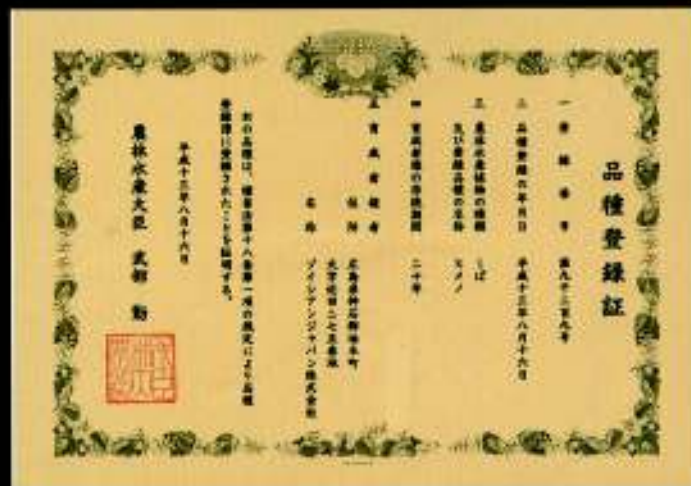 品種登録証
一 登録番号 第九千二百九号
二 品種登録の年月日 平成十三年八月十六日
三 農林水産植物の種類 しば
及び登録品種の名称
四 育成者権の存続期間 二十年
五 育成者権者
住所 広島県神石郡油木町
名称 ゾイシアンジャパン株式会社
右の品種は、種苗法第十八条第一項の規定により品種
登録簿に登録されたことを証明する。
平成十三年八月十六日
農林水産大臣 武部 勤